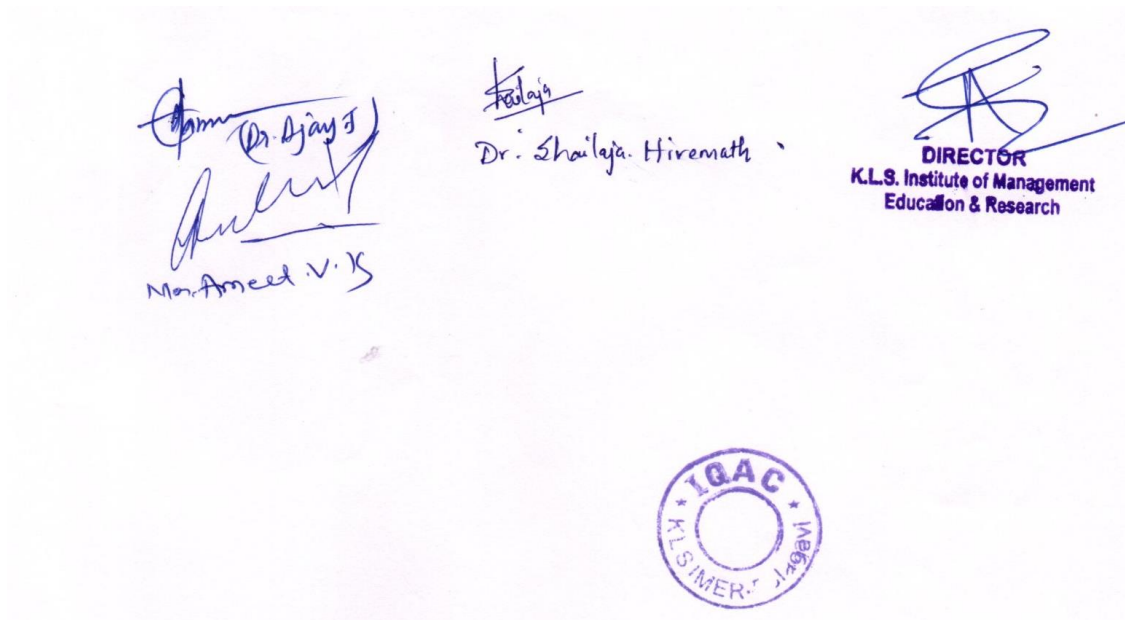 (Dr. Ajay J)
Mr. Ameet .V. K
Shailaja
Dr. Shailaja. Hiremath
DIRECTOR
K.L.S. Institute of Management
Education & Research
IQAC
KLSIMER